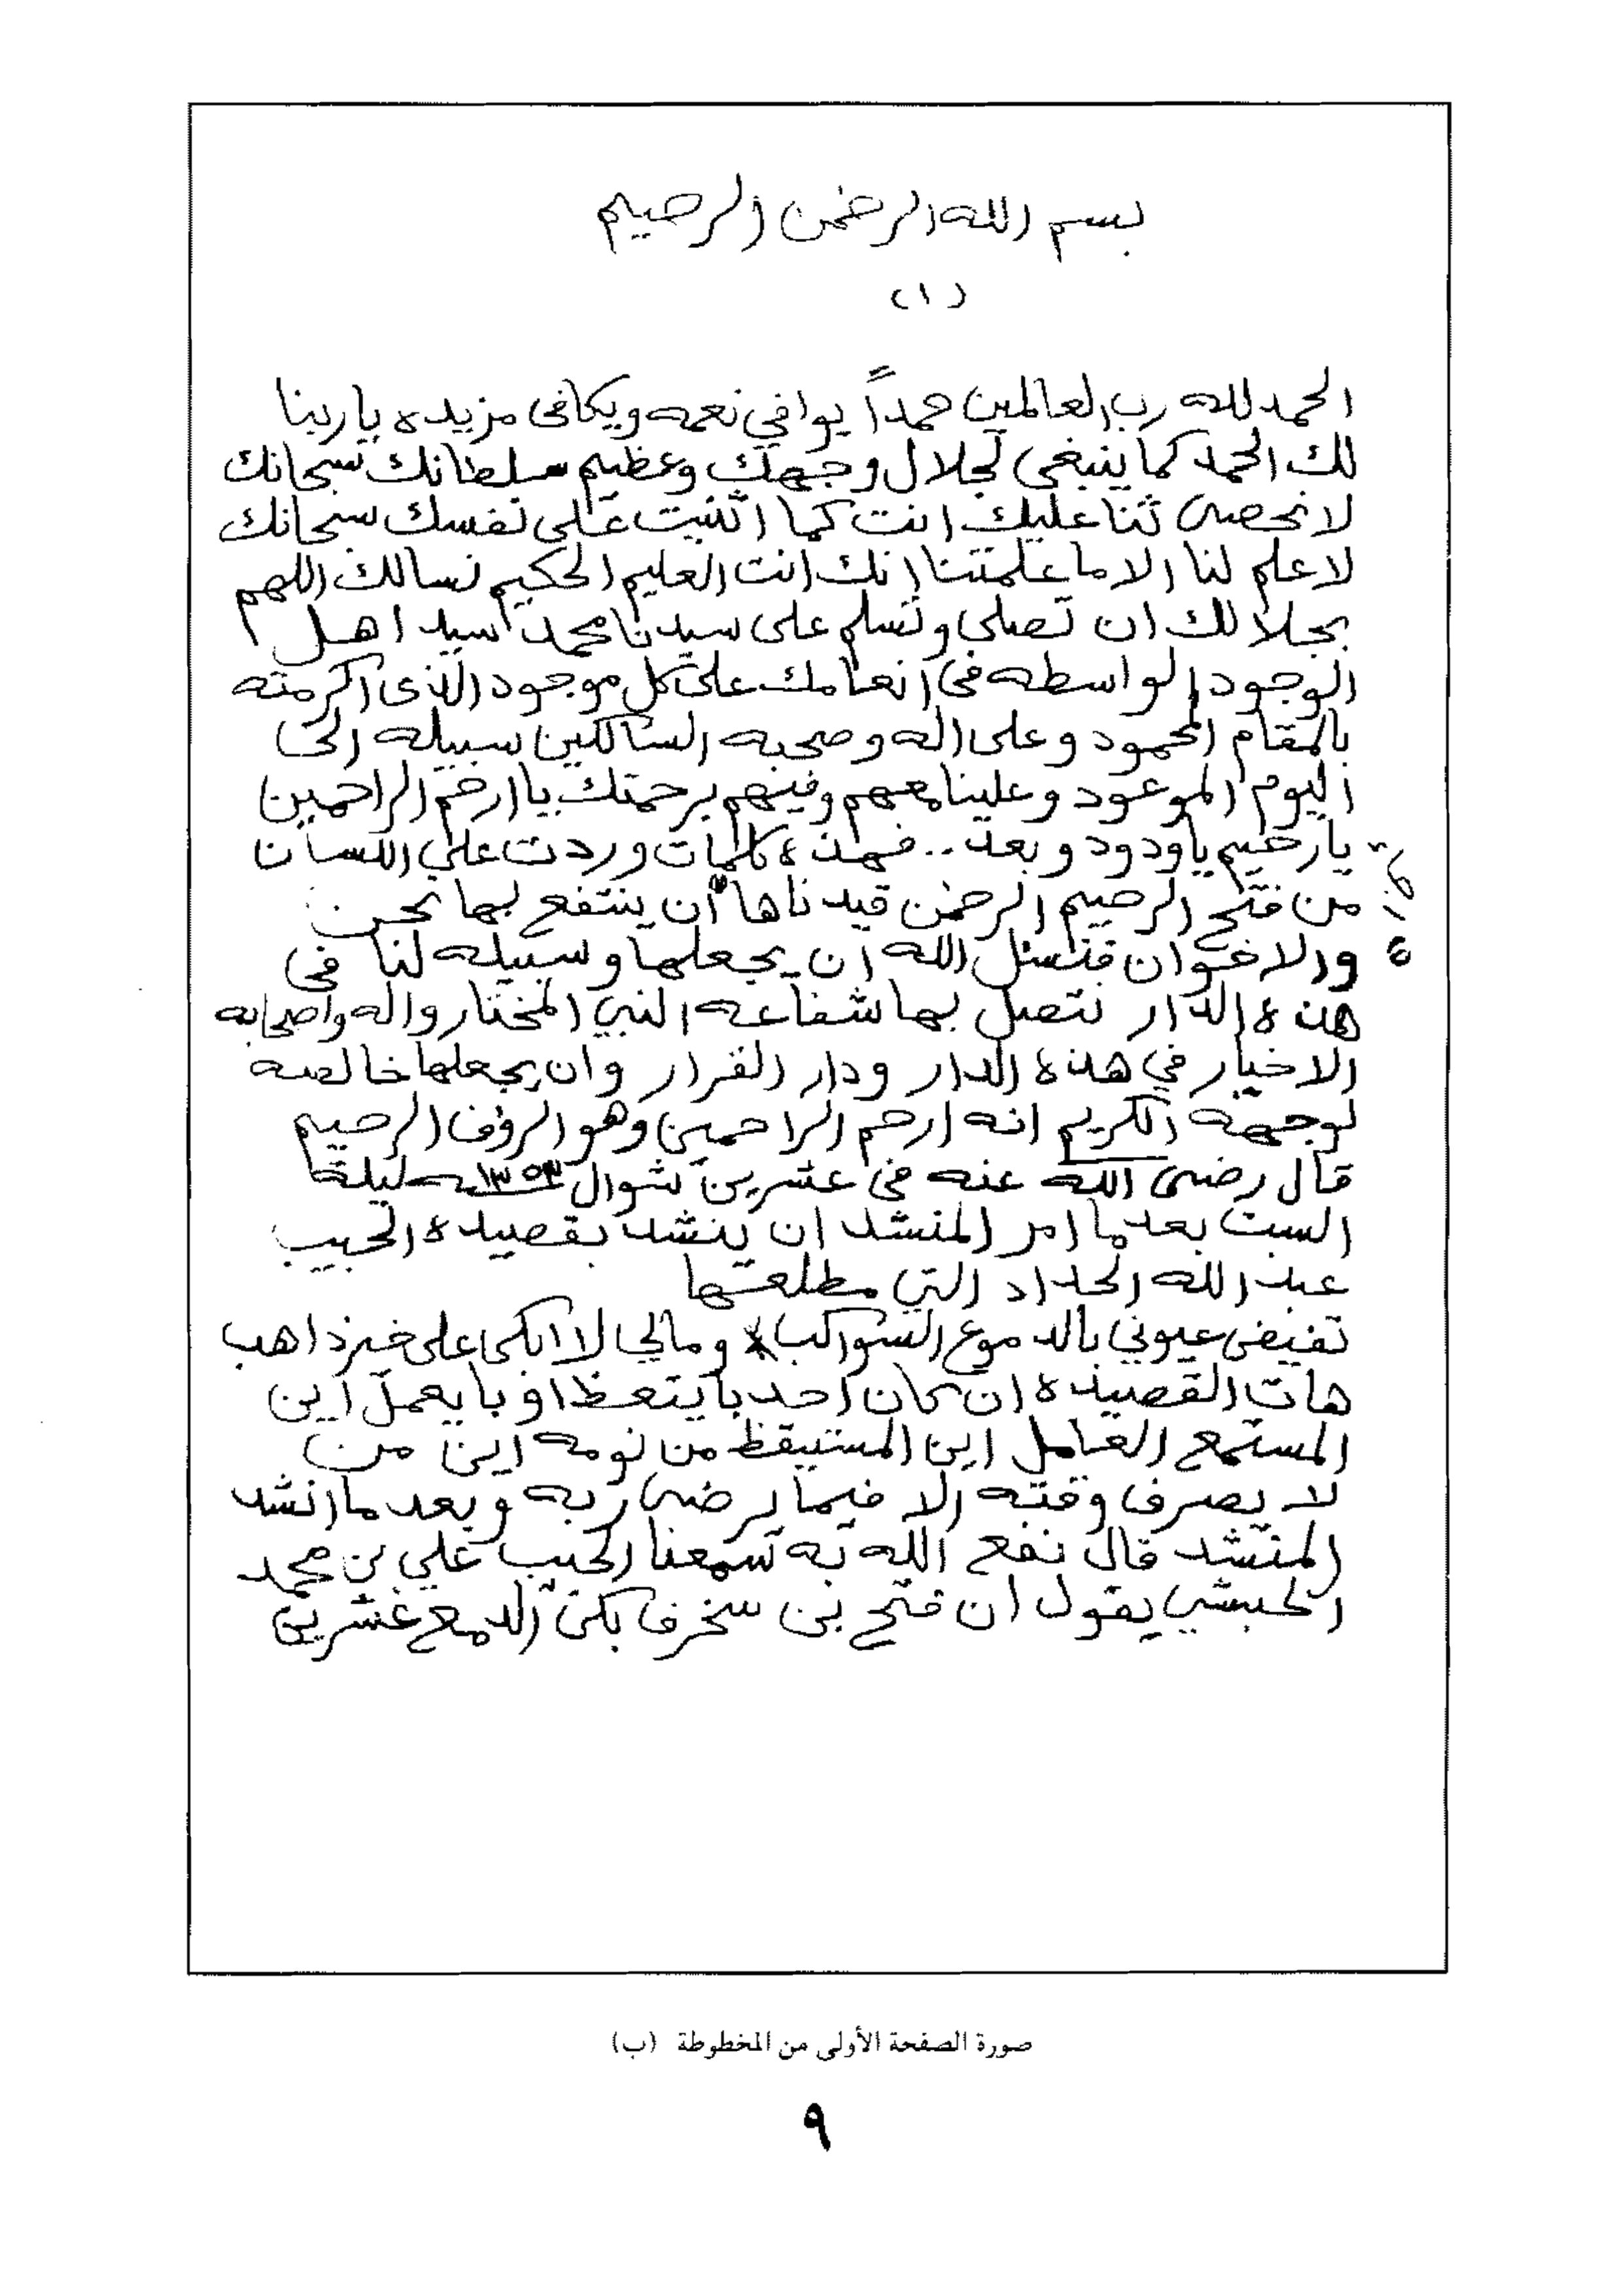 بسم الله الرحمن الرحيم
(١)
الحمد لله رب العالمين حمداً يوافي نعمه ويكافى مزيده ياربنا
لك الحمد كما ينبغي لجلال وجهك وعظيم سلطانك سبحانك
لا نحصى ثنا عليك انت كما اثنيت على نفسك سبحانك
لا علم لنا الا ما علمتنا انك انت العليم الحكيم نسالك اللهم
بجلالك ان تصلي وتسلم على سيدنا محمد سيد اهل
الوجود الواسطه في انعامك على كل موجود الذى اكرمته
بالمقام المحمود وعلى اله وصحبه السالكين سبيله الى
اليوم الموعود وعلينا معهم وفيهم برحمتك يا ارحم الراحمين
يارحيم ياودود وبعد.. فهذه كلمات وردت على اللسان
من فتح الرحيم الرحمن قيدناها أن ينتفع بها نحن
والاخوان فنسئل الله ان يجعلها وسبيله لنا في
هذه الدار نتصل بها شفاعه النبي المختار واله واصحابه
الاخيار في هذه الدار ودار القرار وان يجعلها خالصه
لوجهه الكريم انه ارحم الراحمين وهو الروف الرحيم
قال رضى الله عنه في عشرين شوال ١٣٥٣ه ليلة
السبت بعدما امر المنشد ان ينشد بقصيده الحبيب
عبد الله الحداد التي مطلعها
تفيض عيوني بالدموع السواكب * ومالي لا ابكى على خير ذاهب
هات القصيده ان كان احد بايتعظ او بايعمل اين
المستمع العامل اين المستيقظ من نومه اين من
لا يصرف وقته الا فيما يرضى ربه وبعد ما انشد
المنشد قال نفع الله به سمعنا الحبيب علي بن محمد
الحبشي يقول ان فتح بن سخرف بكى الدمع عشرين
صورة الصفحة الأولى من المخطوطة (ب)
٩